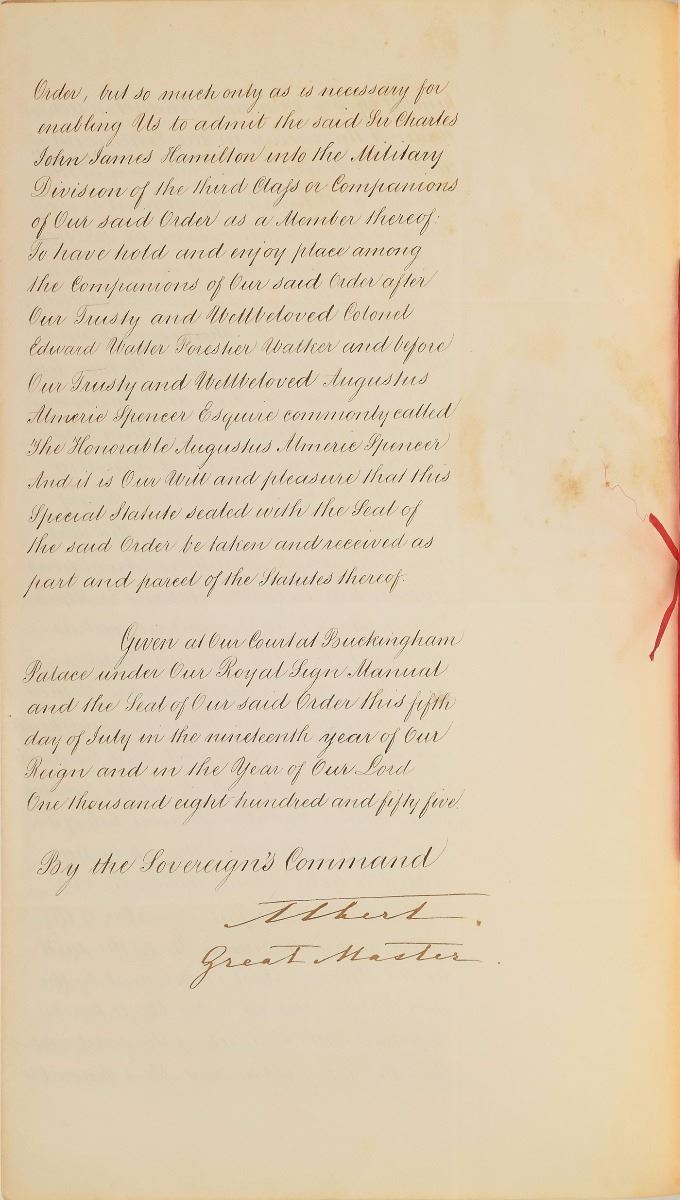 Order, but so much only as is necessary for
enabling Us to admit the said Sir Charles
John James Hamilton into the Military
Division of the third Class or Companions
of Our said Order as a Member thereof:
To have hold and enjoy place among
the Companions of Our said Order after
Our Trusty and Wellbeloved Colonel
Edward Walter Forester Walker and before
Our Trusty and Wellbeloved Augustus
Almeric Spencer Esquire commonly called
The Honorable Augustus Almeric Spencer
And it is Our Will and pleasure that this
Special Statute sealed with the Seal of
the said Order be taken and received as
part and parcel of the Statutes thereof.
Given at Our Court at Buckingham
Palace under Our Royal Sign Manual
and the Seal of Our said Order this fifth
day of July in the nineteenth year of Our
Reign and in the Year of Our Lord
One thousand eight hundred and fifty five.
By the Sovereign's Command
Albert.
Great Master.